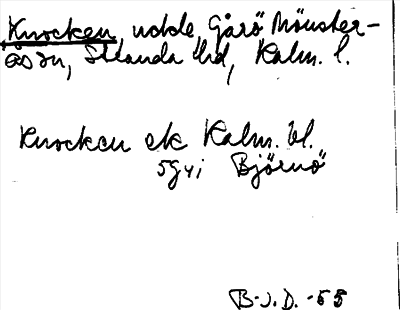 Knocken, udde, Gåsö Mönster-
åsn, Stranda hd, Kalm. l.
Knocken ek Kalm. bl.
5gvi Björnö
B-J.D. -55